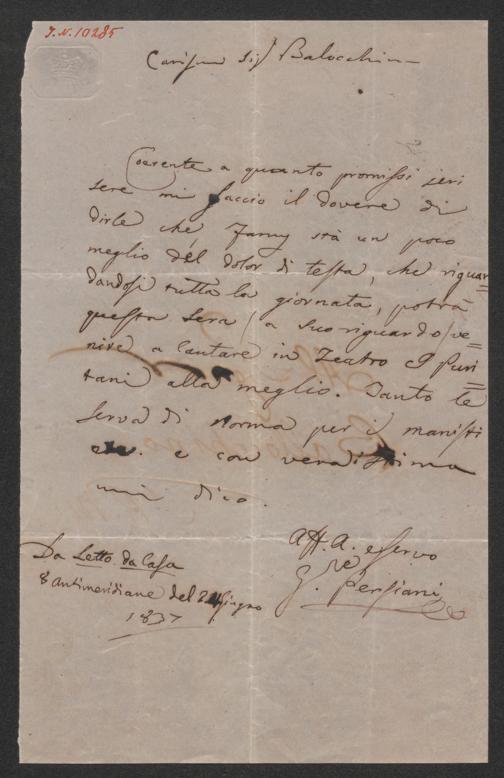 J.N. 10285
Carissimo Sigr Balocchino
Coerente a quanto promissi jeri
sera mi faccio il dovere di
dirle che Fanny stà un poco
meglio del dolor di testa, che riguar=
dandosi tutta la giornata, potrà
questa sera (a suo riguardo) ve=
nire a Cantare in Teatro I Puri=
tani alla meglio. Tanto le
serva di Norma per i manifesti
etc. e con verdissima
mi dico.
Aff. A. e Servo
G. Persiani
Da Letto da Casa
8 antimeridiane del Giugno
1837